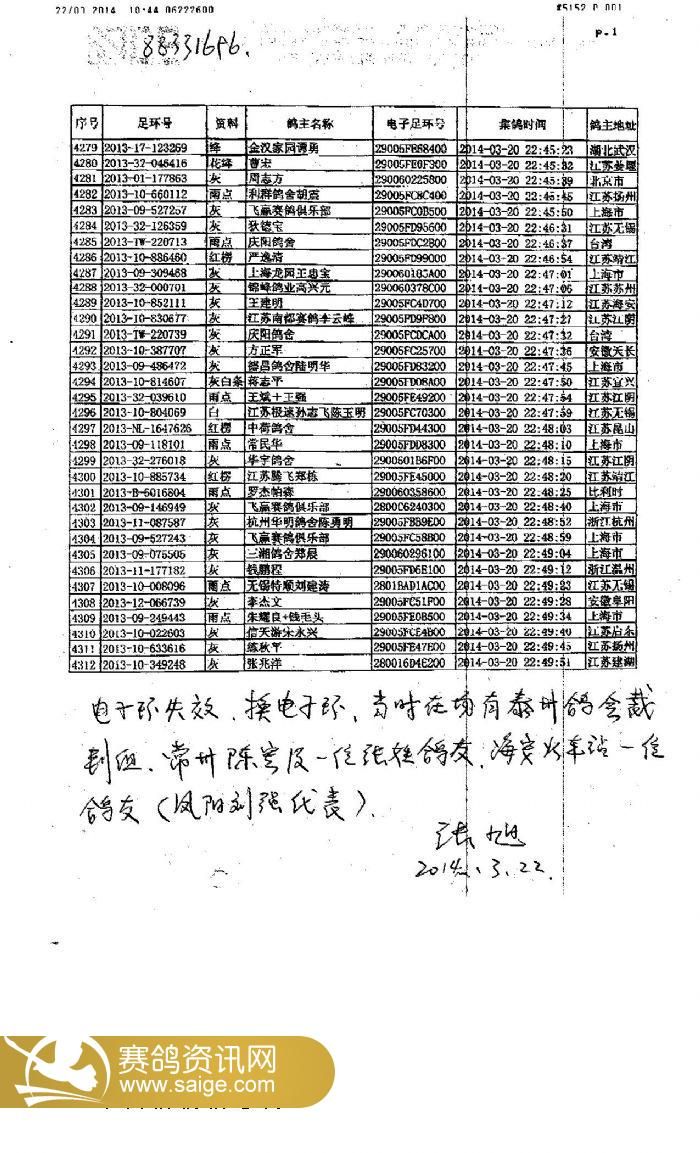 22/03 2014 10:44 06222600 #5152 P.001
P.1
88331696.
序号 足环号 资料 鸽主名称 电子足环号 集鸽时间 鸽主地址
4279 2013-17-123269 绛 金汉家园谭勇 29005FB68400 2014-03-20 22:45:23 湖北武汉
4280 2013-32-046416 花绛 曹宏 29005FE0F300 2014-03-20 22:45:32 江苏姜堰
4281 2013-01-177863 灰 周志方 290060225800 2014-03-20 22:45:39 北京市
4282 2013-10-660112 雨点 利群鸽舍胡震 29005FC8C400 2014-03-20 22:45:45 江苏扬州
4283 2013-09-527257 灰 飞赢赛鸽俱乐部 29005FC0B500 2014-03-20 22:45:50 上海市
4284 2013-32-126359 灰 狄德宝 29005FD95600 2014-03-20 22:46:31 江苏无锡
4285 2013-TW-220713 雨点 庆阳鸽舍 29005FDC2B00 2014-03-20 22:46:37 台湾
4286 2013-10-886460 红楞 严逸清 29005FD99000 2014-03-20 22:46:54 江苏靖江
4287 2013-09-309468 灰 上海龙园王忠宝 290060183A00 2014-03-20 22:47:01 上海市
4288 2013-32-000701 灰 锦峰鸽业高兴元 290060378C00 2014-03-20 22:47:06 江苏苏州
4289 2013-10-852111 灰 王建明 29005FC4D700 2014-03-20 22:47:12 江苏海安
4290 2013-10-830677 灰 江苏南都赛鸽李云峰 29005FD9F800 2014-03-20 22:47:27 江苏江阴
4291 2013-TW-220739 灰 庆阳鸽舍 29005FCDCA00 2014-03-20 22:47:32 台湾
4292 2013-10-387707 灰 方正军 29005FC25700 2014-03-20 22:47:36 安徽天长
4293 2013-09-486472 灰 德昌鸽舍陆明华 29005FD83200 2014-03-20 22:47:45 上海市
4294 2013-10-814607 灰白条 蒋志平 29005FD08A00 2014-03-20 22:47:50 江苏宜兴
4295 2013-32-039610 雨点 王斌+王强 29005FE49200 2014-03-20 22:47:54 江苏江阴
4296 2013-10-804069 白 江苏极速孙志飞陈玉明 29005FC70300 2014-03-20 22:47:59 江苏无锡
4297 2013-NL-1647626 红楞 中荷鸽舍 29005FD44300 2014-03-20 22:48:03 江苏昆山
4298 2013-09-118101 雨点 常民华 29005FDD8300 2014-03-20 22:48:10 上海市
4299 2013-32-276018 灰 华宇鸽舍 2900601B6F00 2014-03-20 22:48:15 江苏江阴
4300 2013-10-885734 红楞 江苏腾飞郑栋 29005FE45000 2014-03-20 22:48:20 江苏靖江
4301 2013-B-6016804 雨点 罗杰帕森 290060358600 2014-03-20 22:48:25 比利时
4302 2013-09-146949 灰 飞赢赛鸽俱乐部 2800C6240300 2014-03-20 22:48:40 上海市
4303 2013-11-087587 灰 杭州华明鸽舍陈勇明 29005FBB9E00 2014-03-20 22:48:52 浙江杭州
4304 2013-09-527243 灰 飞赢赛鸽俱乐部 29005FC58B00 2014-03-20 22:48:59 上海市
4305 2013-09-075505 灰 三湘鸽舍郑晨 290060296100 2014-03-20 22:49:04 上海市
4306 2013-11-177182 灰 钱鹏程 29005FD6E100 2014-03-20 22:49:12 浙江温州
4307 2013-10-008096 雨点 无锡特顺刘建涛 2801BAD1AC00 2014-03-20 22:49:23 江苏无锡
4308 2013-12-066739 灰 李杰文 29005FC51F00 2014-03-20 22:49:28 安徽阜阳
4309 2013-09-249443 雨点 朱耀良+钱毛头 29005FE0B500 2014-03-20 22:49:34 上海市
4310 2013-10-022603 灰 信天游宋永兴 29005FCE4B00 2014-03-20 22:49:40 江苏启东
4311 2013-10-633616 灰 练秋平 29005FE47E00 2014-03-20 22:49:45 江苏扬州
4312 2013-10-349248 灰 张兆洋 280016D4E200 2014-03-20 22:49:51 江苏建湖
电子环失效、换电子环,当时在场有泰州鸽会裁
判 、常州陈宏及一位张姓鸽友、海安火车站一位
鸽友(凤阳刘强代表).
张旭
2014.3.22.
赛鸽资讯网
www.saige.com